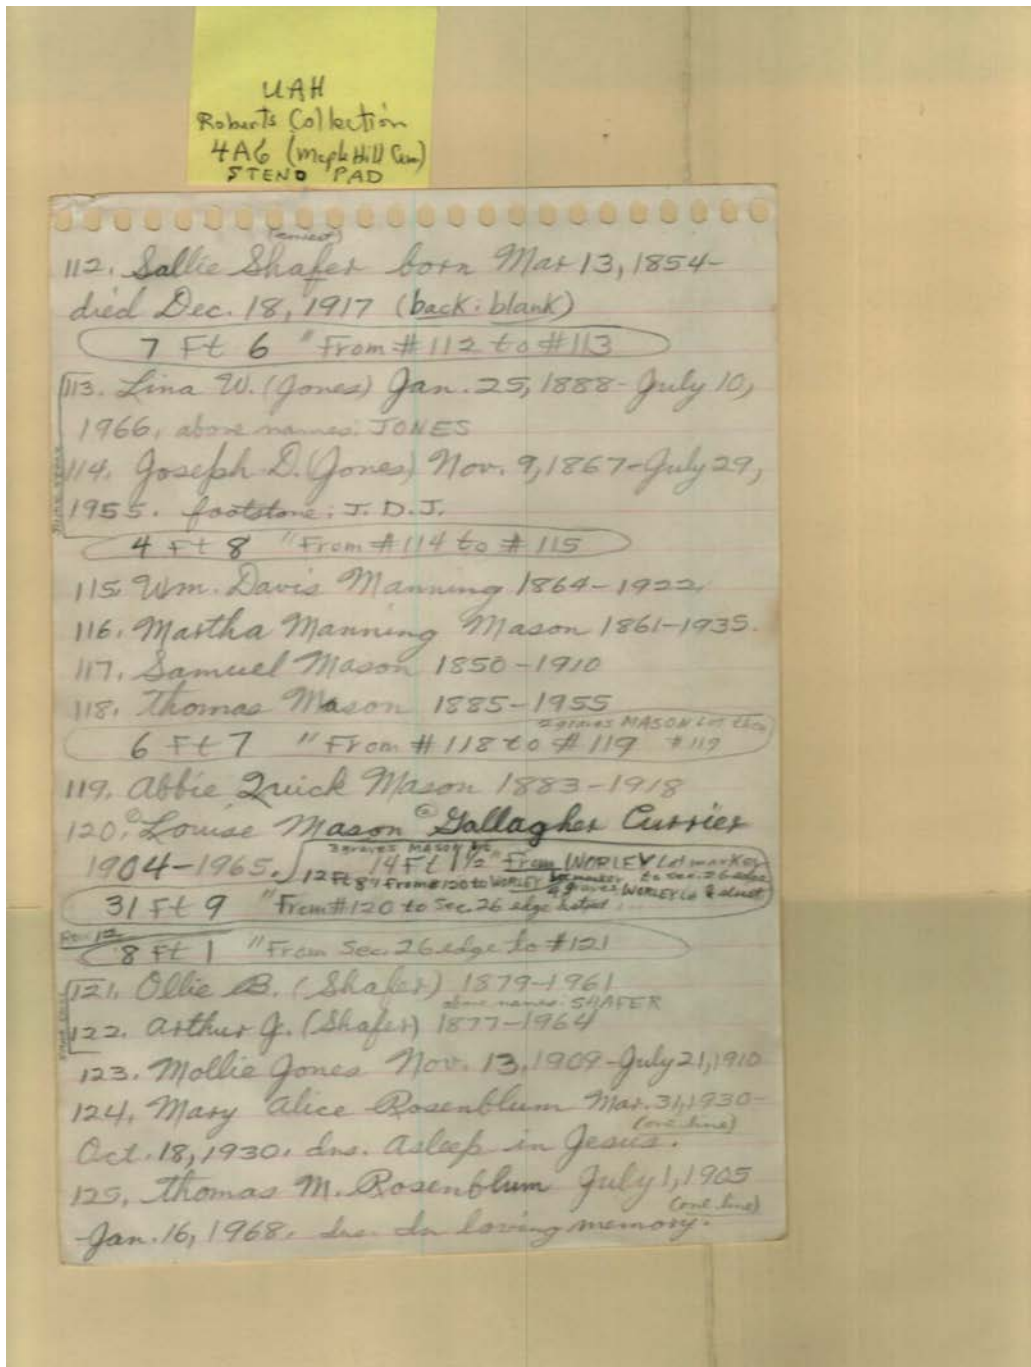 UAH
Roberts Collection
4A6 (Maple Hill Cem)
STENO PAD
(correct)
112. Sallie Shafer born Mar 13, 1854-
died Dec. 18, 1917 (back: blank)
7 Ft 6 " From #112 to #113
113. Lina W. (Jones) Jan. 25, 1888- July 10,
1966, above names: JONES
114. Joseph D. (Jones) Nov. 9, 1867-July 29,
1955. footstone: J. D. J.
4 Ft 8 " From #114 to #115
115. Wm. Davis Manning 1864-1922.
116. Martha Manning Mason 1861-1935.
117. Samuel Mason 1850-1910
118. Thomas Mason 1885-1955
2 graves MASON Lot then
6 Ft 7 " From #118 to #119 #119
119. Abbie Quick Mason 1883-1918
120. Louise Mason Gallagher Currier
3 graves MASON
1904-1965. 14 Ft 1 1/2" From WORLEY Lot marker
12 Ft 8" From #120 to WORLEY Lot marker to sec. 26 edge
4 graves WORLEY Lot
31 Ft 9 "From #120 to Sec. 26 edge
Row 12
8 Ft 1 "From Sec. 26 edge to #121
121. Ollie B. (Shafer) 1879-1961
above names: SHAFER
122. Arthur J. (Shafer) 1877-1964
123. Mollie Jones Nov. 13, 1909-July 21, 1910
124. Mary Alice Rosenblum Mar. 31, 1930-
(one line)
Oct. 18, 1930. ins. Asleep in Jesus.
125. Thomas M. Rosenblum July 1, 1905
(one line)
Jan. 16, 1968. ins. In loving memory.